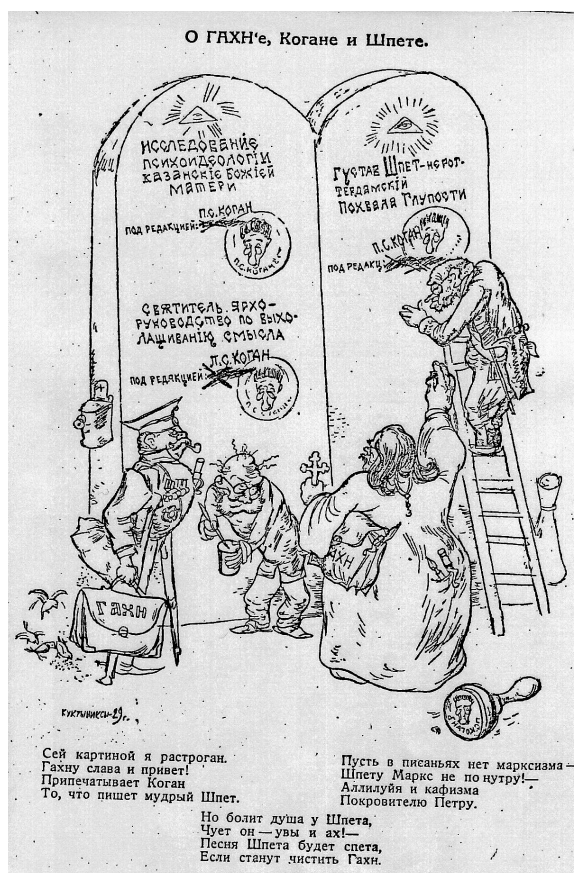 О ГАХН'е, Когане и Шпете.
ИССЛЕДОВАНИЕ
ПСИХОИДЕОЛОГІИ
КАЗАНСКІЕ БОЖІЕЙ
МАТЕРИ
П.С. КОГАН
ПОД РЕДАКЦИЕЙ:
СВЯТИТЕЛЬ. ЯРХО-
РУКОВОДСТВО ПО ВЫХО-
ЛАЩИВАНІЮ СМЫСЛА
П.С. КОГАН
ПОД РЕДАКЦИЕЙ:
ГУСТАВ ШПЕТ-НЕРОТ-
ТЕРДАМСКІЙ
ПОХВАЛА ГЛУПОСТИ
П.С. КОГАН
ПОД РЕДАКЦ:
ГАХН
ГАХН
КУКРЫНИКСЫ-29 г.
Сей картиной я растроган.
Гахну слава и привет!
Припечатывает Коган
То, что пишет мудрый Шпет.
Пусть в писаньях нет марксизма —
Шпету Маркс не по нутру!—
Аллилуйя и кафизма
Покровителю Петру.
Но болит душа у Шпета,
Чует он — увы и ах!—
Песня Шпета будет спета,
Если станут чистить Гахн.